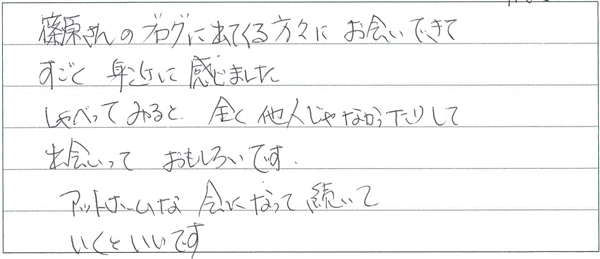 篠原さんのブログに出てくる方々に お会いできて
すごく 身近に 感じました
しゃべってみると、全く他人じゃなかったりして
出会いって おもしろいです.
アットホームな 会になって 続いて
いくといいです